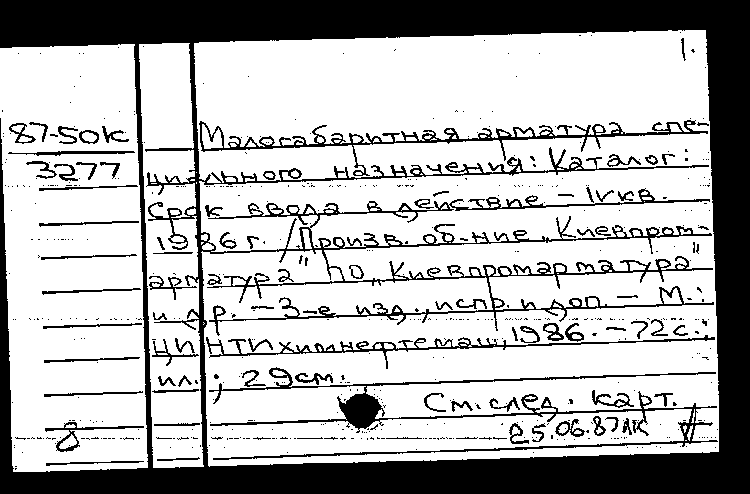 1.
87-50к Малогабаритная арматура спе-
3277 циального назначения: Каталог:
Срок ввода в действие - IV кв.
1986 г. / Произв. об-ние „Киевпром-
арматура" ПО „Киевпромарматура"
и др. - 3-е изд., испр. и доп. - М.:
ЦИНТИхимнефтемаш, 1986. - 72 с.:
ил.; 29 см.
См. след. карт.
8 25.06.87 ЛК